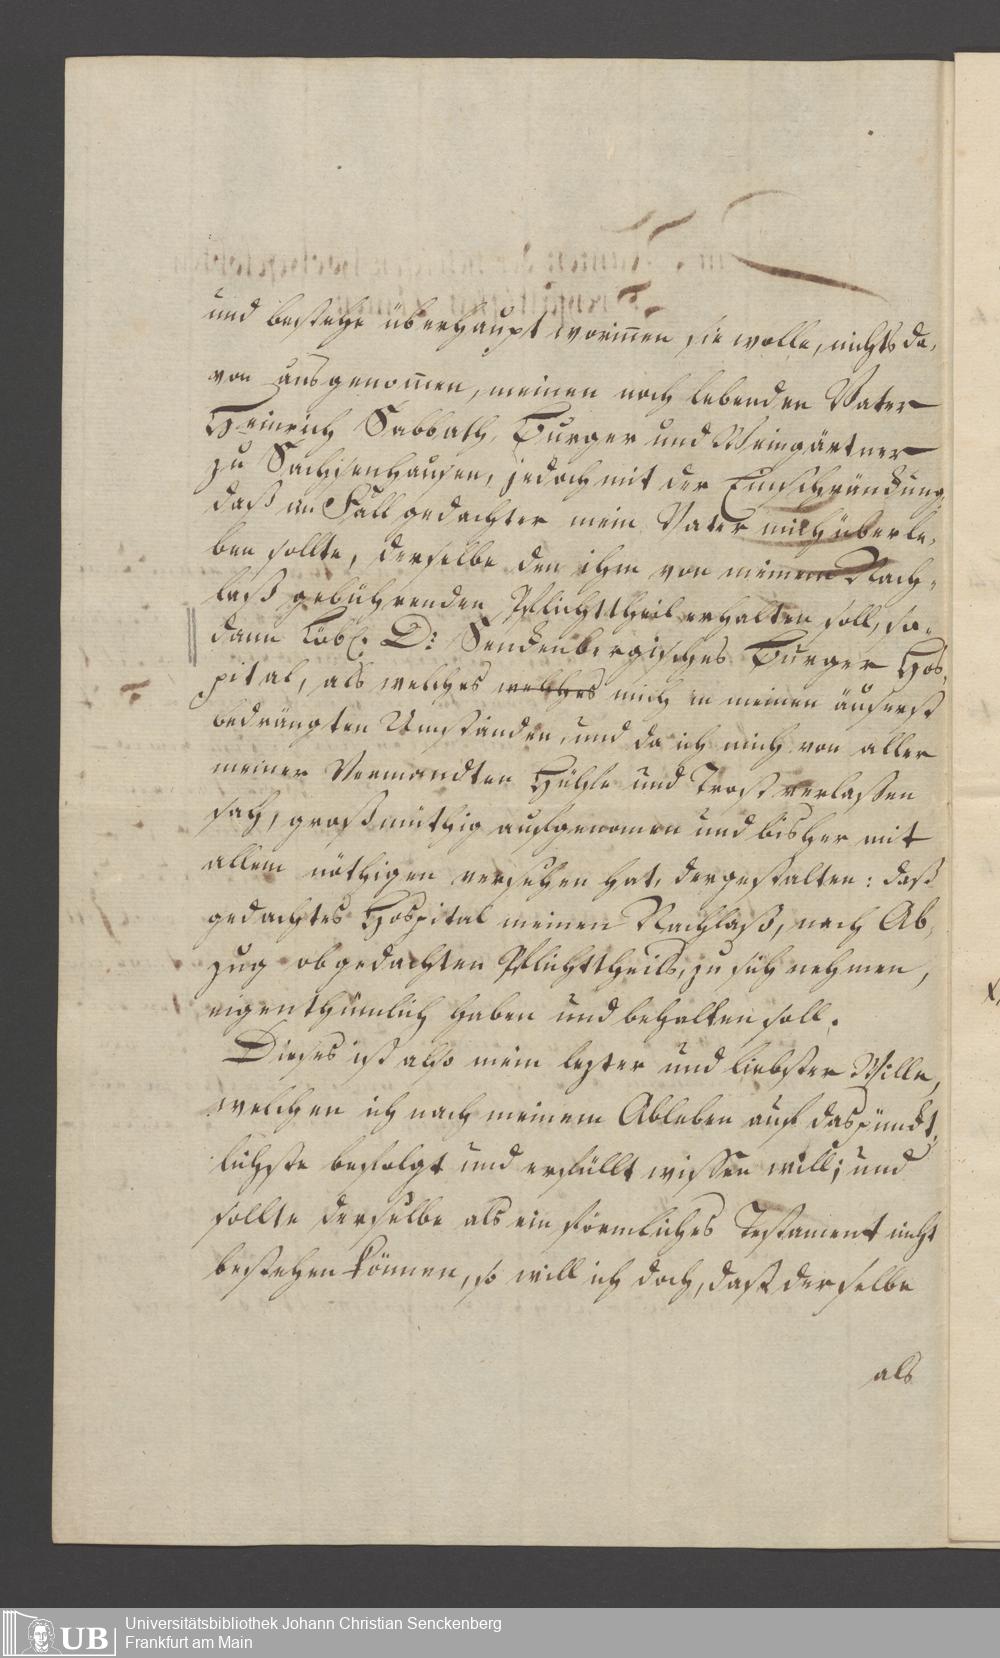 und bestehe überhaupt worinnen sie wolle, nichts da,
von ausgenom̅en, meinen noch lebenden Vater
Heinrich Sabbath, Burger und Weingärtner
zu Sachsenhausen, jedoch mit der Einschränckung,
daß im Fall gedachter mein Vater mich überle,
ben sollte, derselbe den ihm von meinem Nach,
laß gebührenden Pflichttheil erhalten soll, so,
dann Löbl. Dr: Senckenbergisches Burger Hos,
pital, als welches welches mich in meinen äuserst
bedrängten Umständen, und da ich mich von aller
meiner Verwandten Hülfe und Trost verlaßen
sah, großmüthig aufgenomen und bisher mit
allem nöthigen versehen hat, dergestalten: daß
gedachtes Hospital meinen Nachlaß, nach Ab,
zug obgedachten Pflichttheils, zu sich nehmen,
eigenthümlich haben und behalten soll.
Dieses ist also mein lezter und liebster Wille,
welchen ich nach meinem Ableben auf das pünckt,
lichste befolgt und erfüllt wissen will; und
sollte derselbe als ein förmliches Testament nicht
bestehen können, so will ich doch, daß derselbe
als
UB
Universitätsbibliothek Johann Christian Senckenberg
Frankfurt am Main